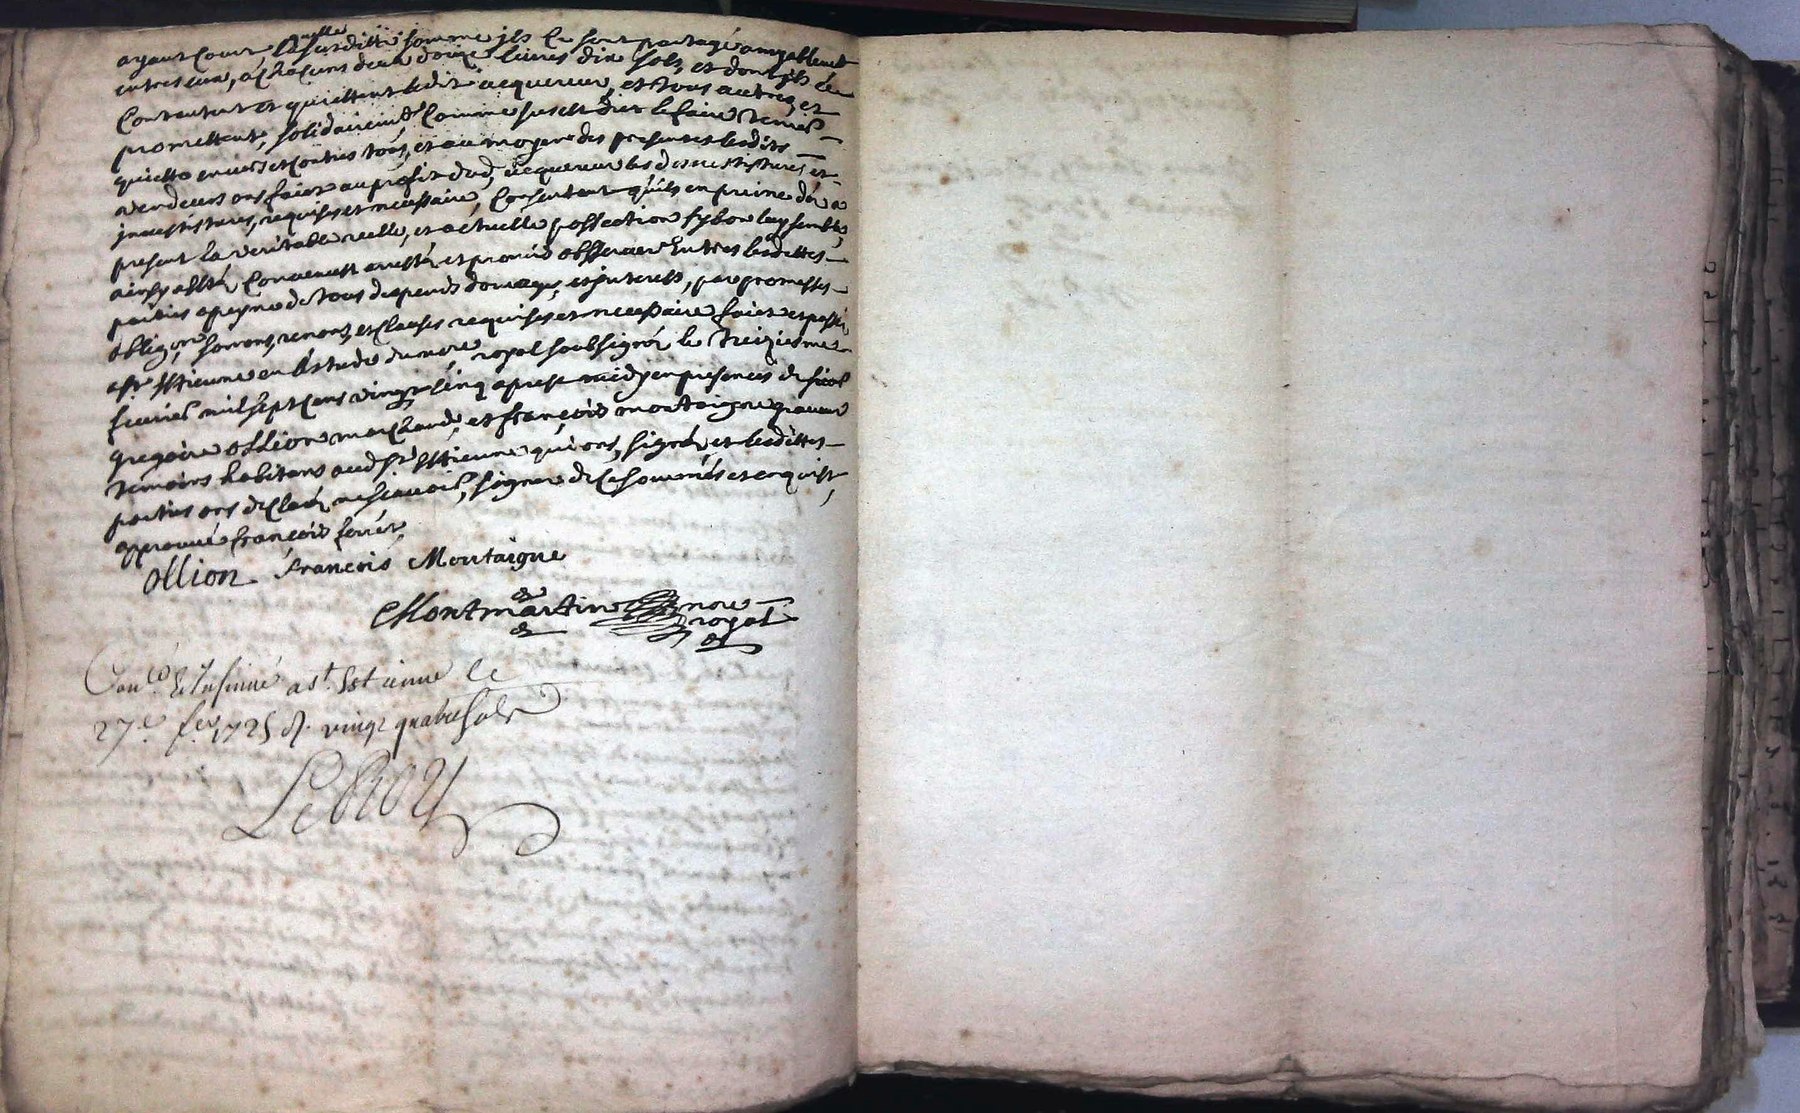 ayant cour laquelle susditte somme ils se sont partagé amyablement
entres eux, a chacuns deux douze livres dix sols, et dont ils se
contentent et quictent ledit acquereur, et tous autres, et
promettent, solidairemt comme sus est dict le faire tenir
quicte envers et contres tous, et au moyen des presentes lesdits
vendeurs ont faict au profit dud. acquereur les devestitures et
investitures, requises et necessaire, consentant qu'ils en preine dor a
present la veritable reelle, et actuelle possection sy bon luy semble,
ainsy a esté convenu arresté et promis observer entres lesdittes
parties a peyne de tous depends domages, et interest, par promesses
oblig.ons, serons, renons, et clauses requises et necessaire faict et passé
a St Estienne en l'estude du nore royal soubsigné le treiziesme
fevrier mil sept cens vingt cinq apres midy en presences de sieur
gregoire ollion marchand, et françois montaigne graveur
temoins habitans aud. St Estienne qui ont, signé, et lesdittes
parties ont declaré ne sçavoir, signer de ce sommés et enquist,
approuvé françois ferrét,
Ollion françois Montaigne
Montmartin nore
royal
Con.lé & insinué a st. Estienne le
27.e fer. 1725 R. vingt quatre sols
Le Roy